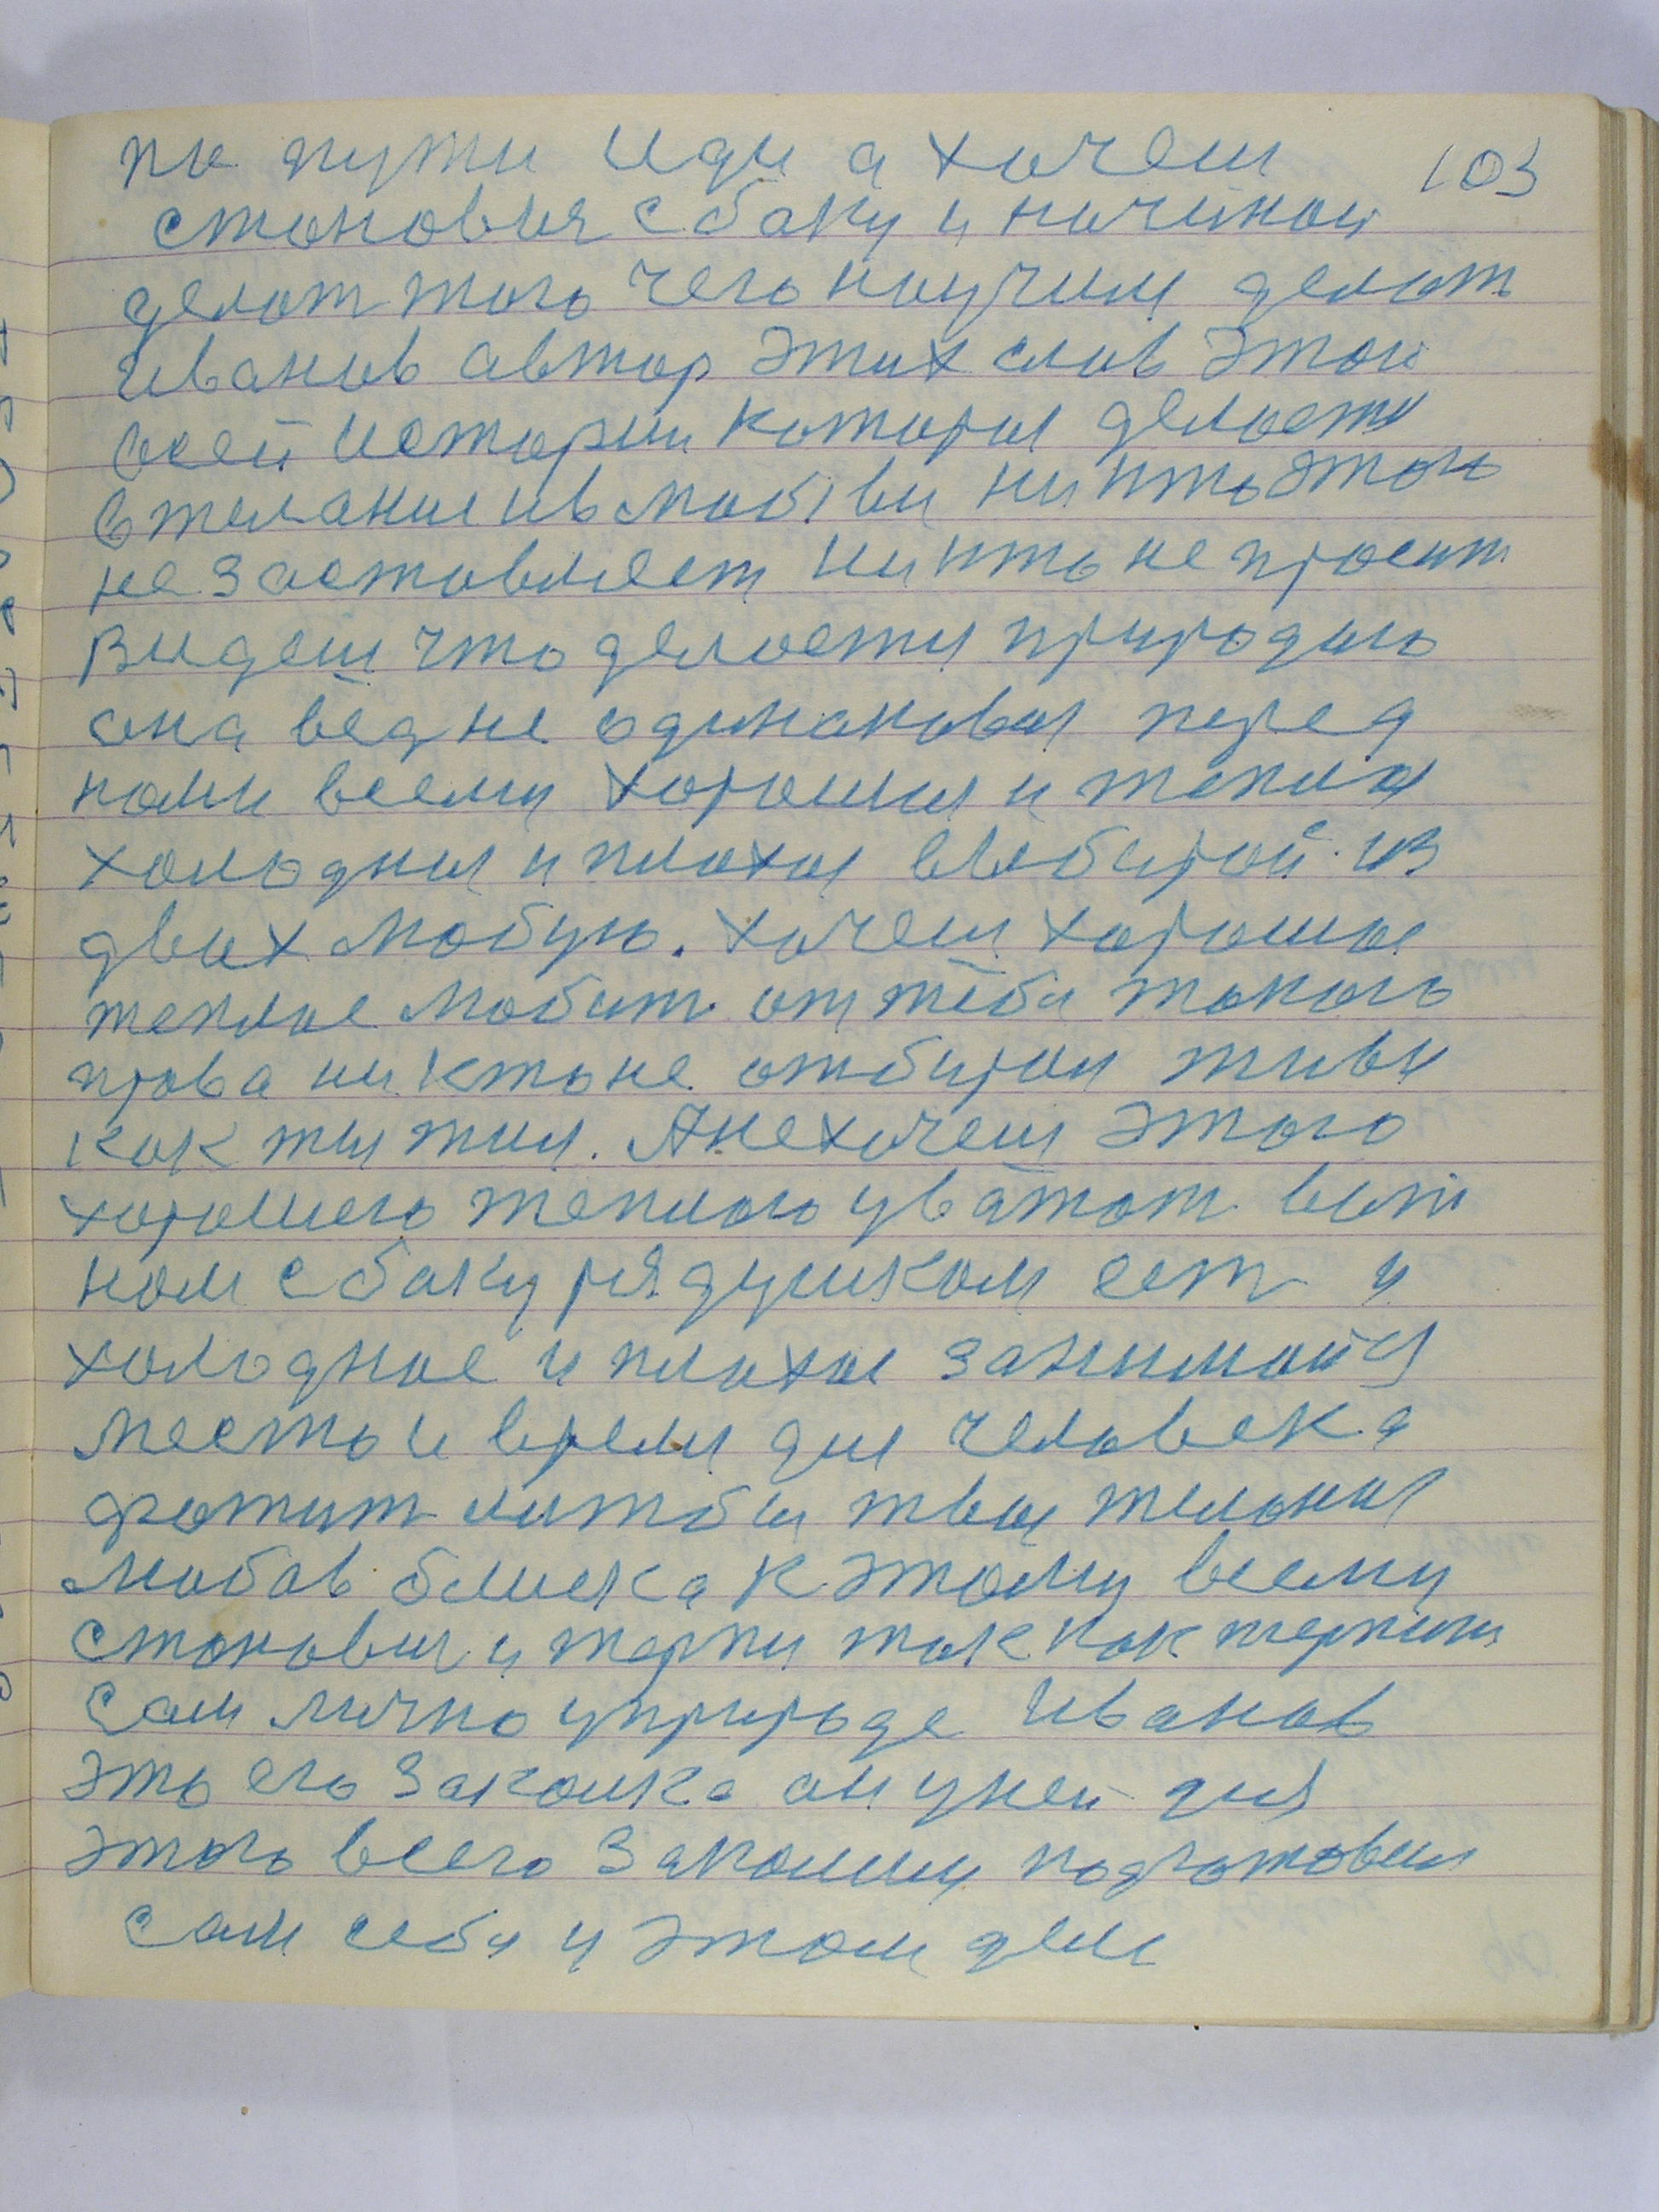 103
по пути иди а хочеш
становися с баку и начиной
делат того чего научил делат
Иванов автор этих слов этой
всей истории которая делается
в желание и в любви никто этого
не заставляет никто не просит
Видеш что делается природою
она вед не одинаковая перед
нами всему хорошая и теплая
холодная и плохая выбирай из
двих любую. Хочеш хорошое
теплое любит от тебя такого
права никто не отбирал живи
как ти жил. А не хочеш этого
хорошего теплого уважат вот
ном с баку рядушком ест и
холодное и плохое занимайся
место и время для человека
фатит литбы твое желания
любов блиска к этому всему
становис и терпи так как терпит
сам лично у природе Иванов
это его закалка он у ней для
этого всего законну подготовил
сам себя у этом деле